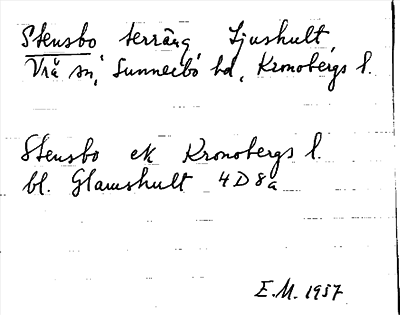 Stensbo terräng, Ljushult,
Vrå sn, Sunnerbo hd, Kronobergs l.
Stensbo ek Kronobergs l.
bl. Glamshult 4D8a
E.M. 1957